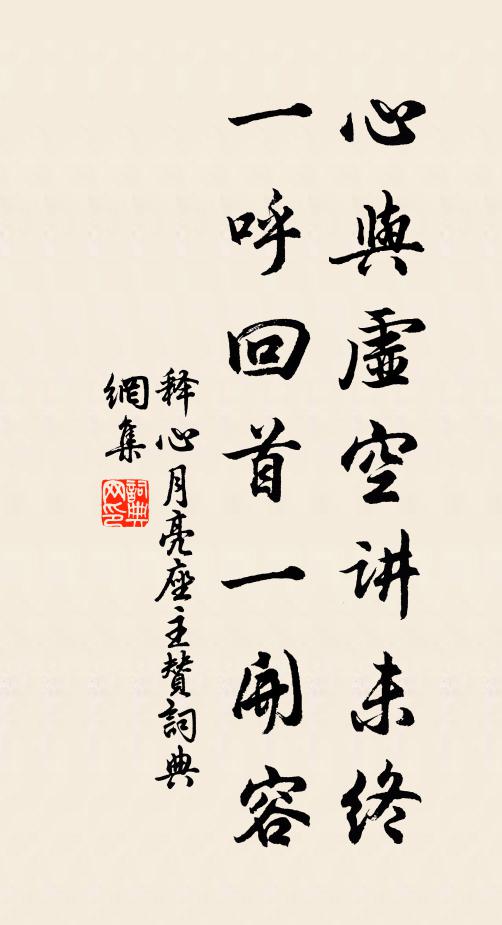 心與虛空讲未终
一呼回首一開容
释心月亮座主赞詞典
網集
詞典
网印